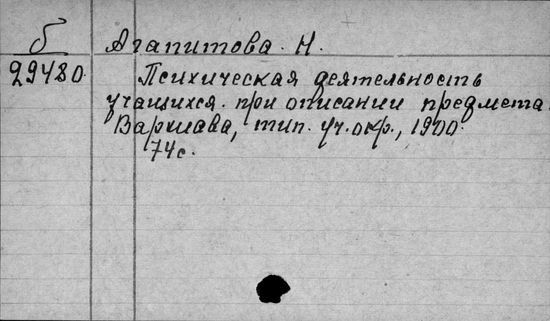 б Агапитова. Н.
29480. Психическая деятельность
учащихся. при описании предмета.
Варшава, тип. уч. окр., 1900.
74 с.